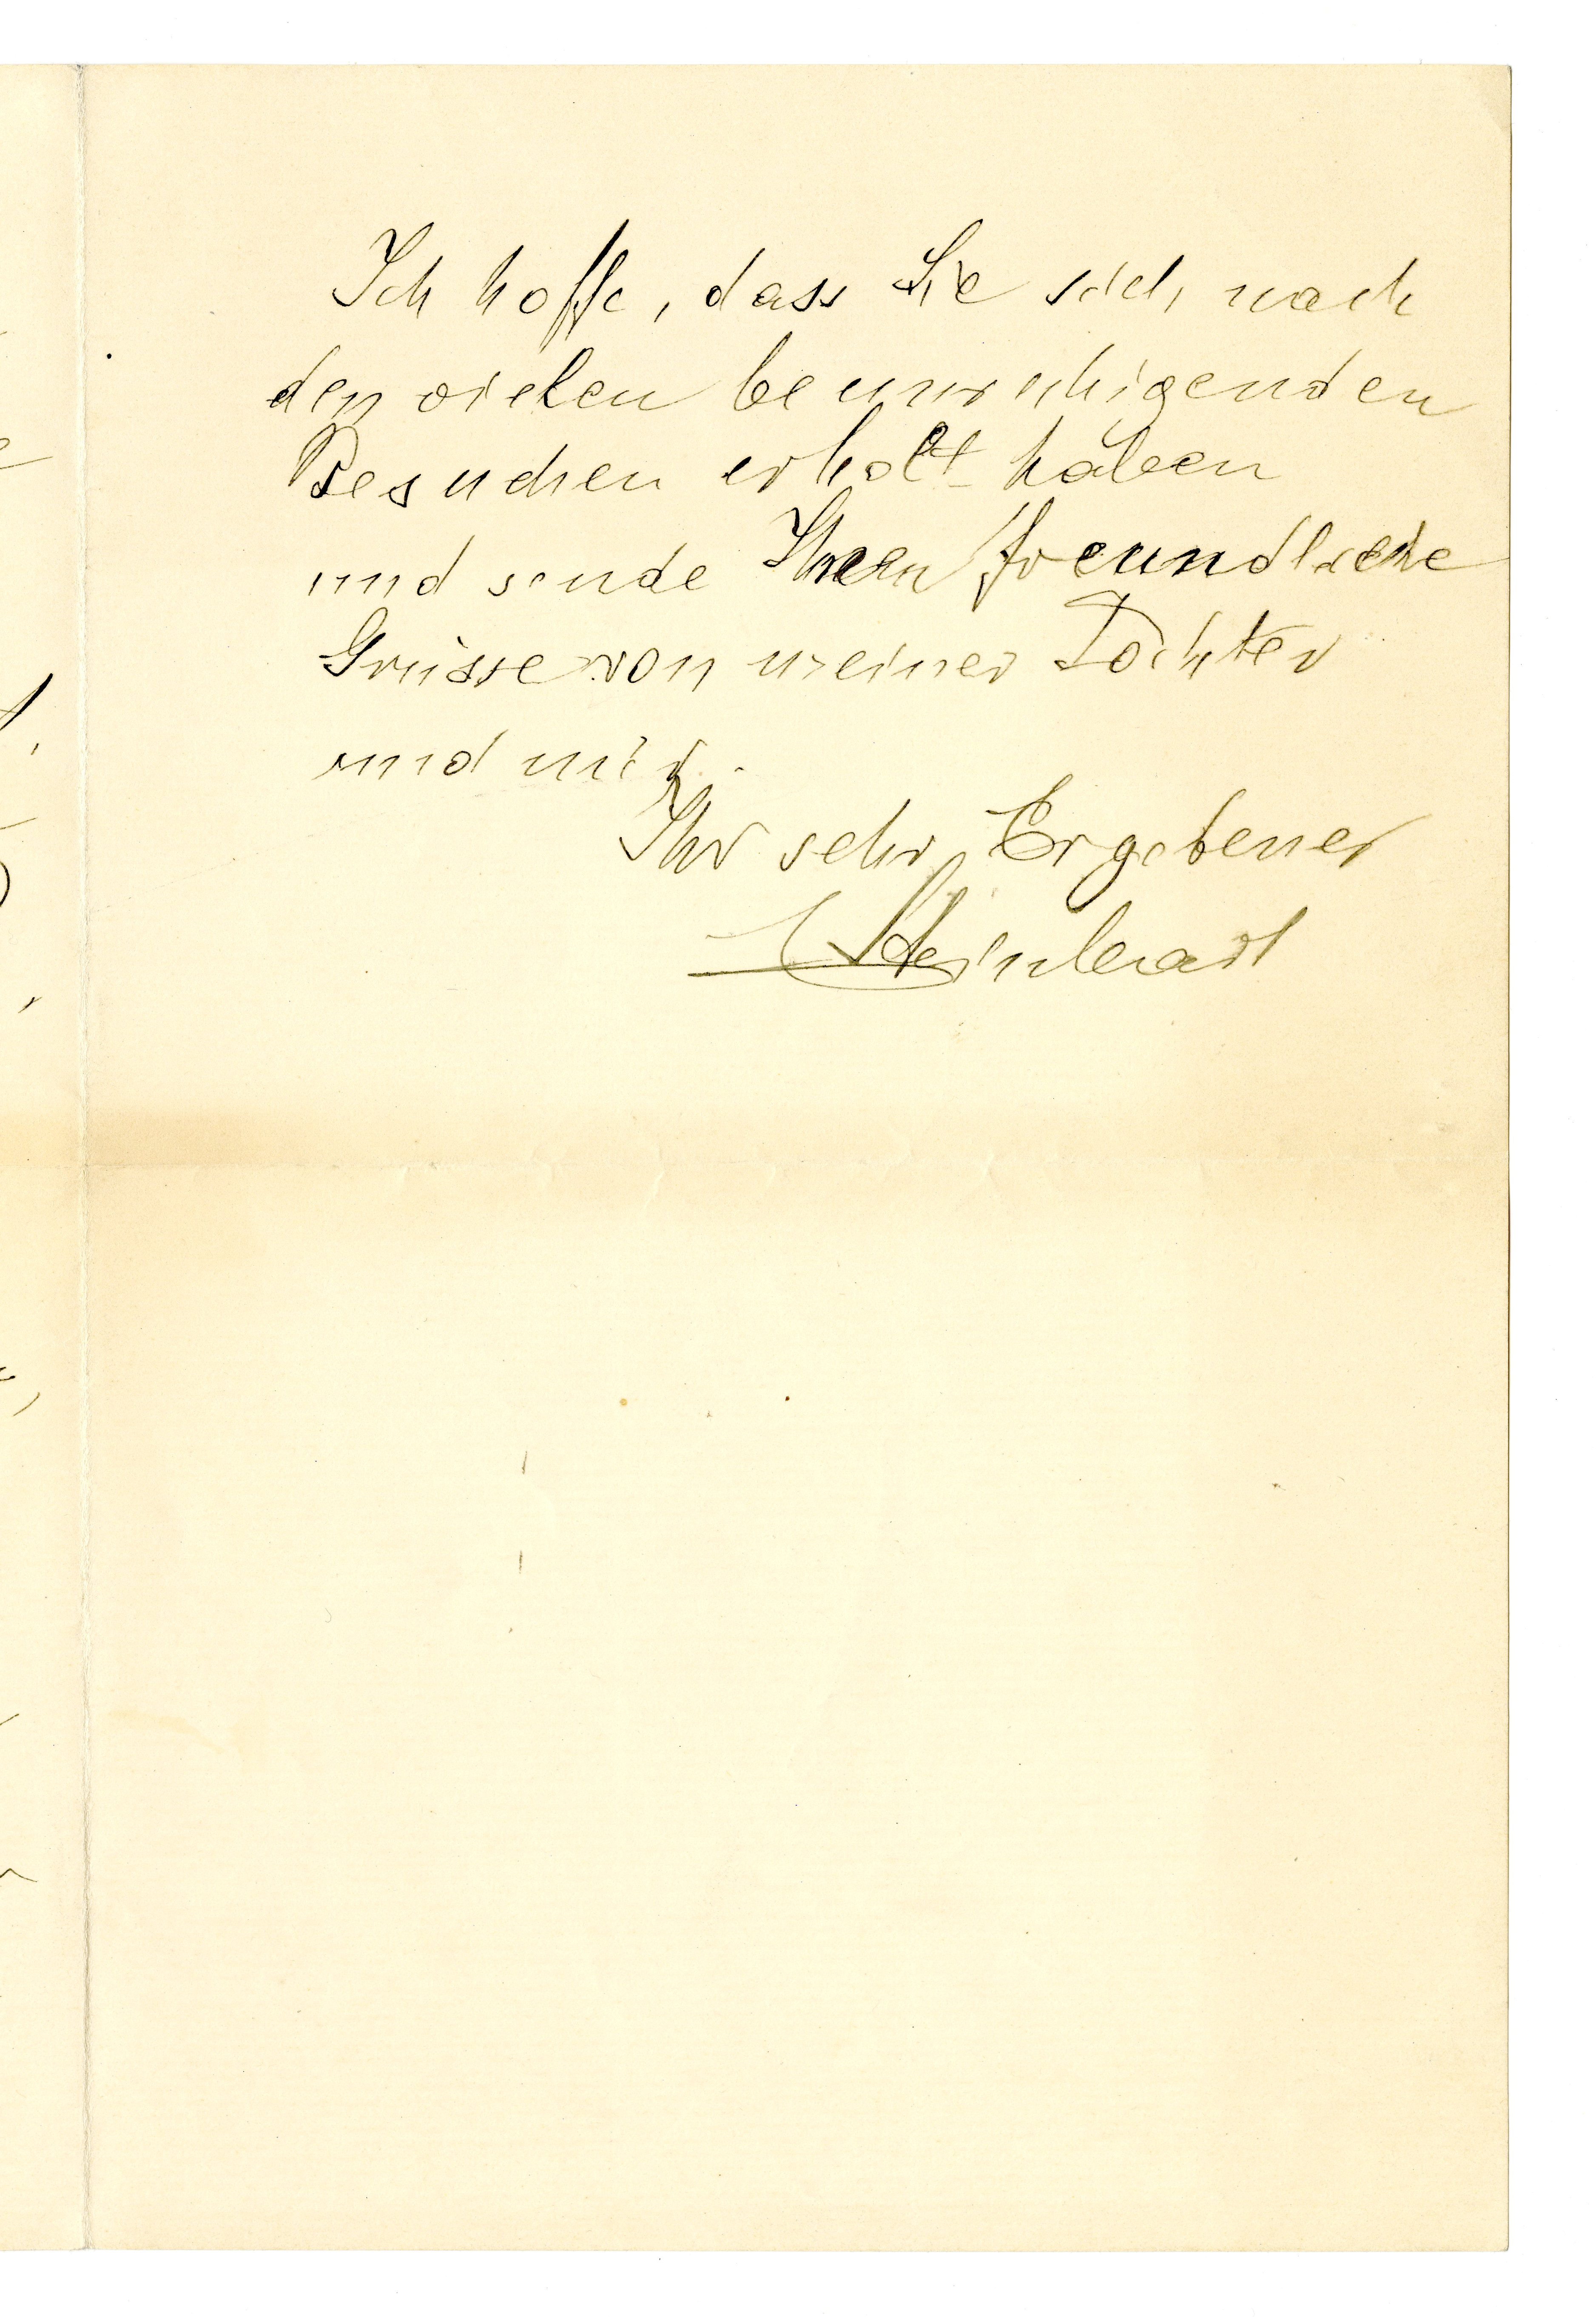 Ich hoffe, dass Sie sich nach
den vielen beunruhigenden
Besuchen erholt haben
und sende Ihnen freundliche
Grüsse von meiner Tochter
und mir.
Ihr sehr Ergebener